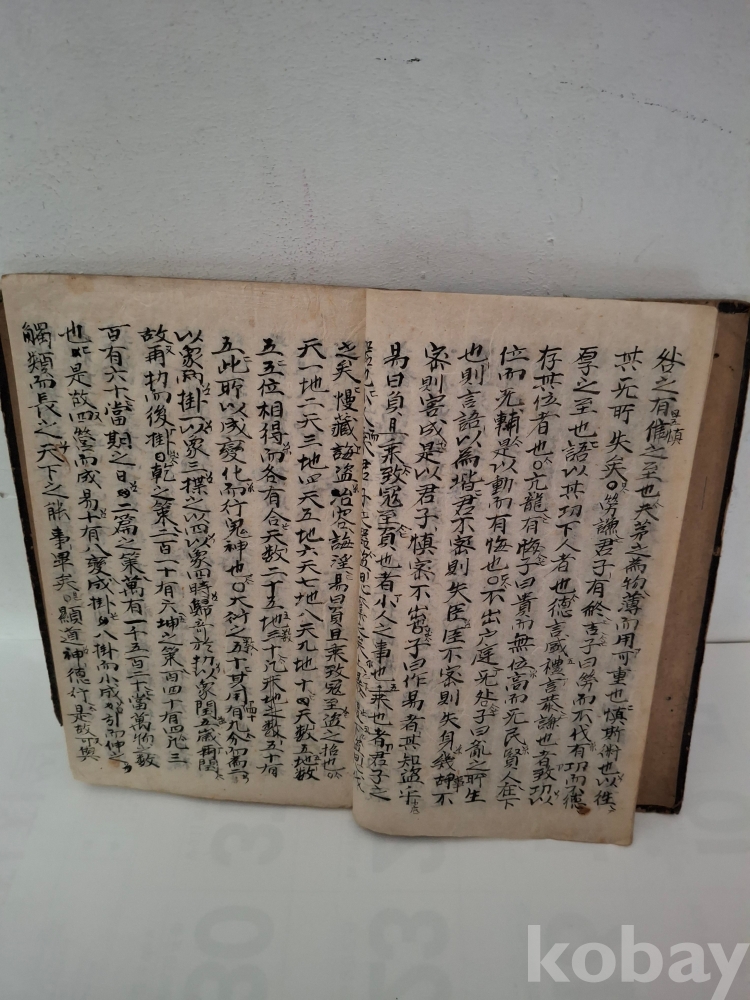 咎之有慎之至也夫茅之為物薄而用可重也慎斯術也以往
其无所失矣○勞謙君子有終吉子曰勞而不伐有功而不德
厚之至也語以其功下人者也德言盛禮言恭謙也者致功以
存其位者也○亢龍有悔子曰貴而無位高而无民賢人在下
位而无輔是以動而有悔也○不出戶庭无咎子曰亂之所生
也則言語以為階君不密則失臣臣不密則失身幾事不
密則害成是以君子慎密不出也子曰作易者其知盜乎
易曰負且乘致寇至負也者小人之事也乘也者君子之
之矣慢藏誨盜冶容誨淫易曰負且乘致寇至盜之招也○
天一地二天三地四天五地六天七地八天九地十天數五地數
五五位相得而各有合天數二十五地三十凡天地之數五十有
五此所以成變化而行鬼神也○大衍之五十其用有九分而為二
以象兩掛一以象三揲之以四以象四時歸奇於扐以象閏五歲再閏
故再扐而後掛○乾之策二百一十有六坤之策百四十有四凡三
百有六十當期之日二篇之策萬有一千五百二十當萬物之數
也是故四營而成易十有八變成掛八掛而小成引而伸之
觸類而長之天下之能事畢矣顯道神德行是故可與
kobay